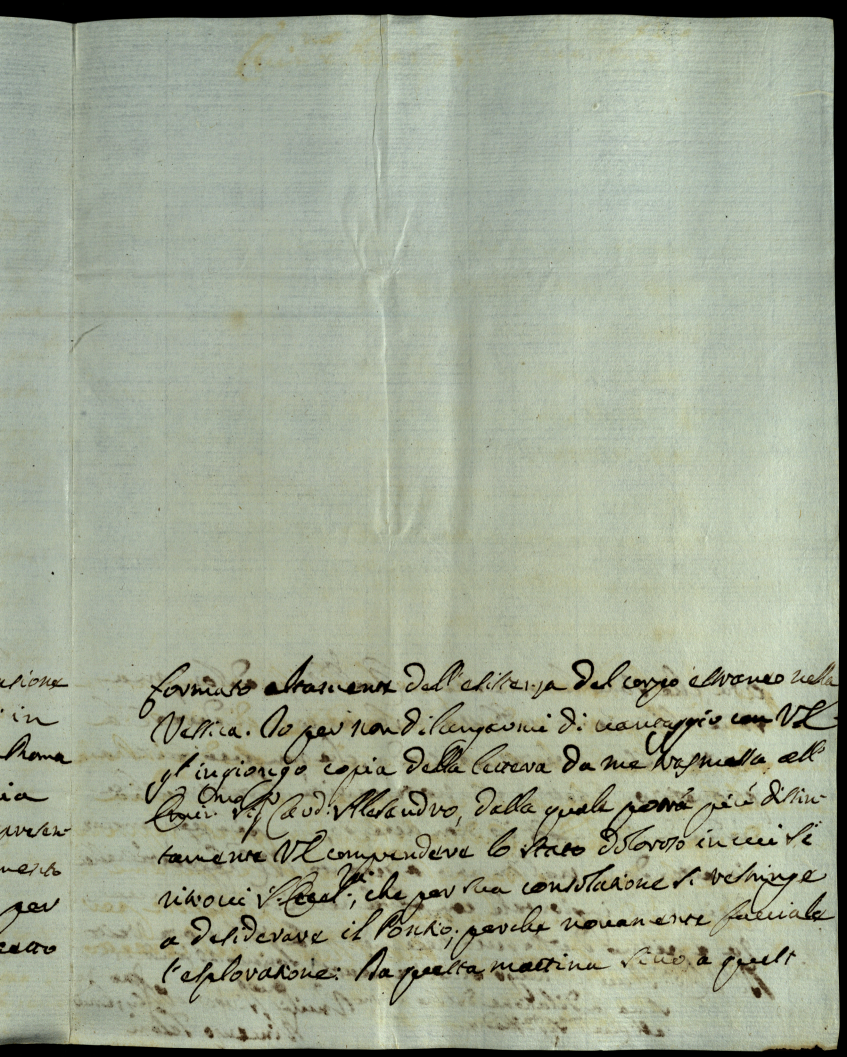 usione
in
Roma
ia
presen-
mento
per
formato altamente dell'esistenza del corpo estraneo nella
Vessica. Io per non dilongarmi di vantaggio con VS
gl'ingiongo copia della lettera da me trasmessa all'
Emo Sig. Card. Alesandro, dalla quale potrà più distin-
tamente VS comprendere lo stato doloroso in cui si
ritrovi, che per sua consolazione si restringe
a desiderare il Ponsio, perche novamente facciale
l'esplorazione. Da questa mattina sino a quest